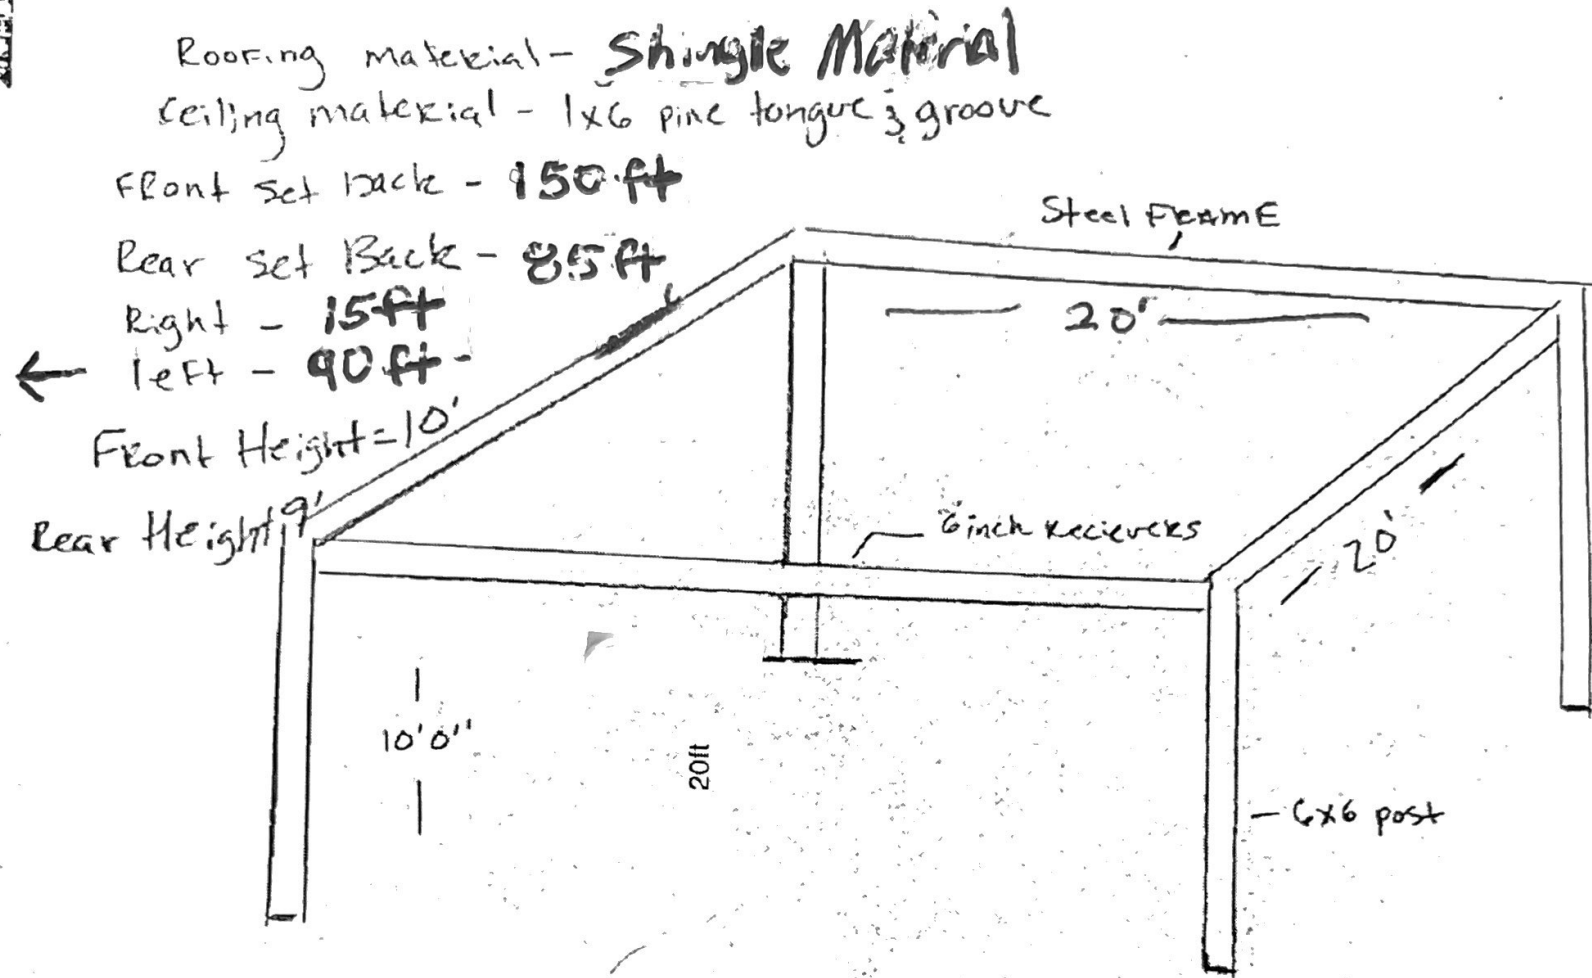 Roofing material - Shingle Material
Ceiling material - 1x6 pine tongue & groove
Front set Back - 150 ft
Rear set Back - 85 ft
Right - 15 ft
left - 90 ft -
Front Height = 10'
Rear Height 9'
Steel FramE
20'
6 inch Recievers
20'
10'0"
20ft
- 6x6 post